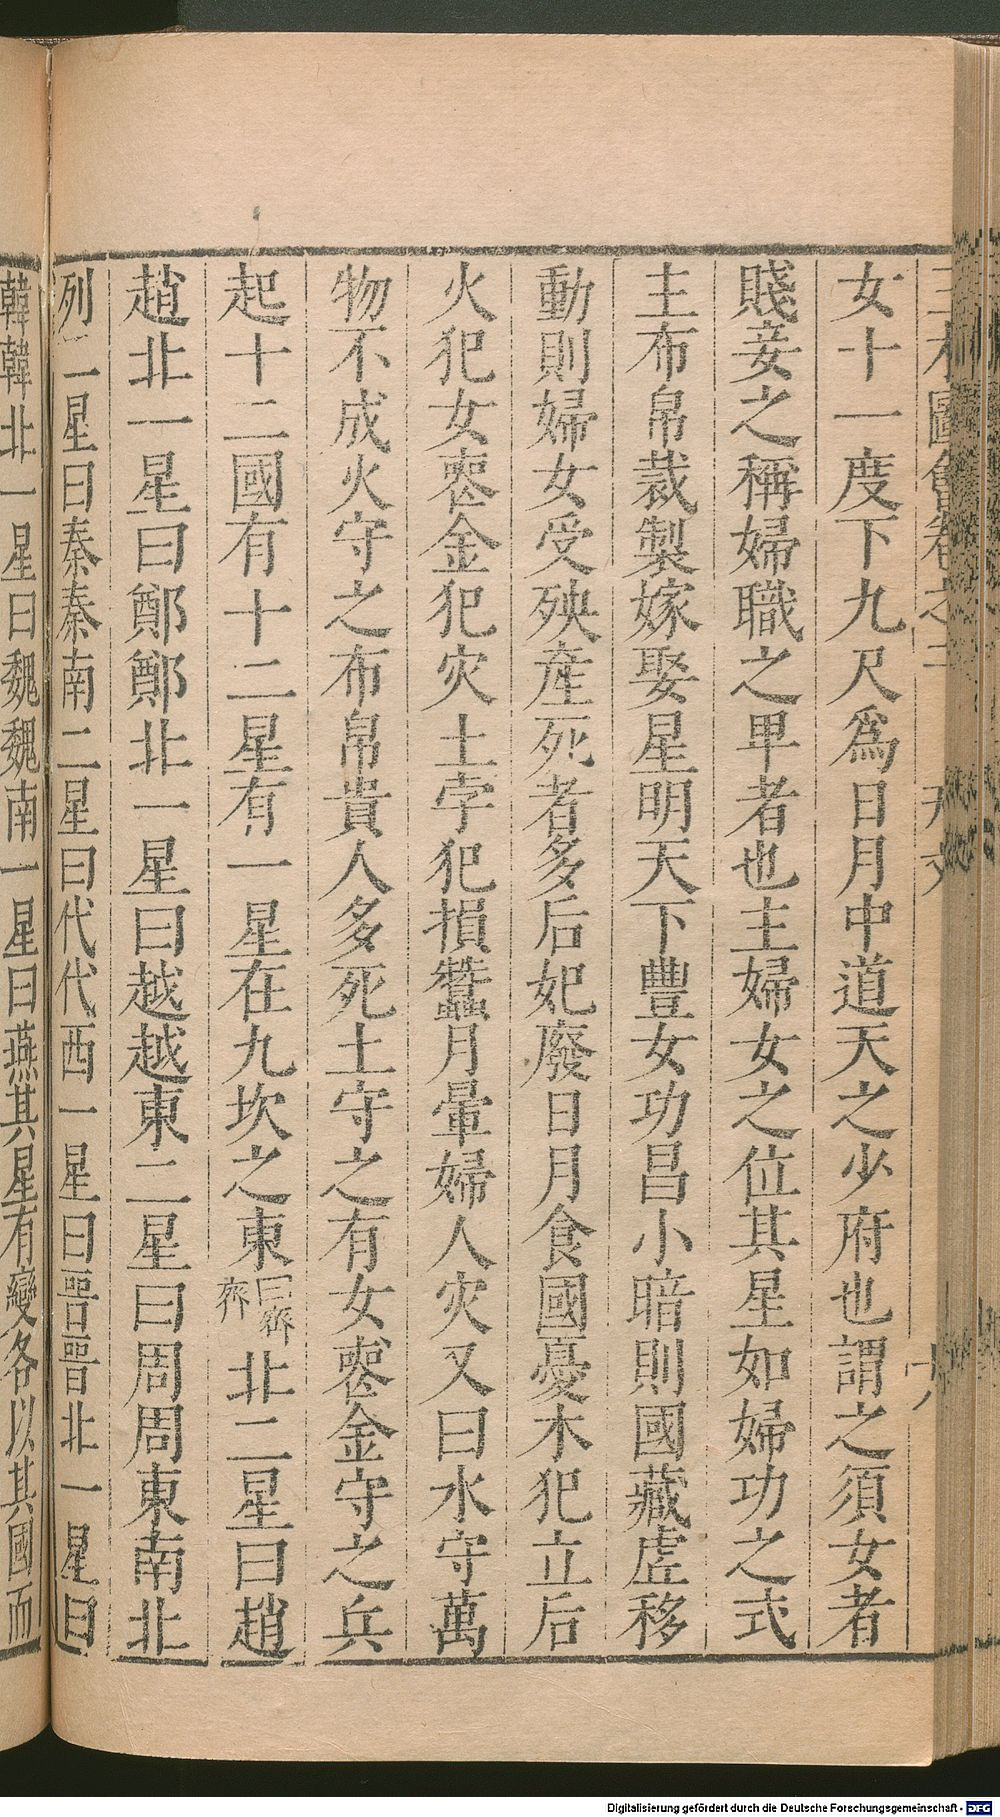 女十一度下九尺爲日月中道天之少府也謂之須女者
賤妾之稱婦職之卑者也主婦女之位其星如婦功之式
主布帛裁製嫁娶星明天下豐女功昌小暗則國藏虛移
動則婦女受殃產死者多后妃廢日月食國憂木犯立后
火犯女喪金犯灾土孛犯損蠶月暈婦人灾又曰水守萬
物不成火守之布帛貴人多死土守之有女喪金守之兵
起十二國有十二星有一星在九坎之東曰齊齊北二星曰趙
趙北一星曰鄭鄭北一星曰越越東二星曰周周東南北
列二星曰秦秦南二星曰代代西一星曰晉晉北一星曰
韓韓北一星曰魏魏南一星曰燕其星有變各以其國而
Digitalisierung gefördert durch die Deutsche Forschungsgemeinschaft - DFG